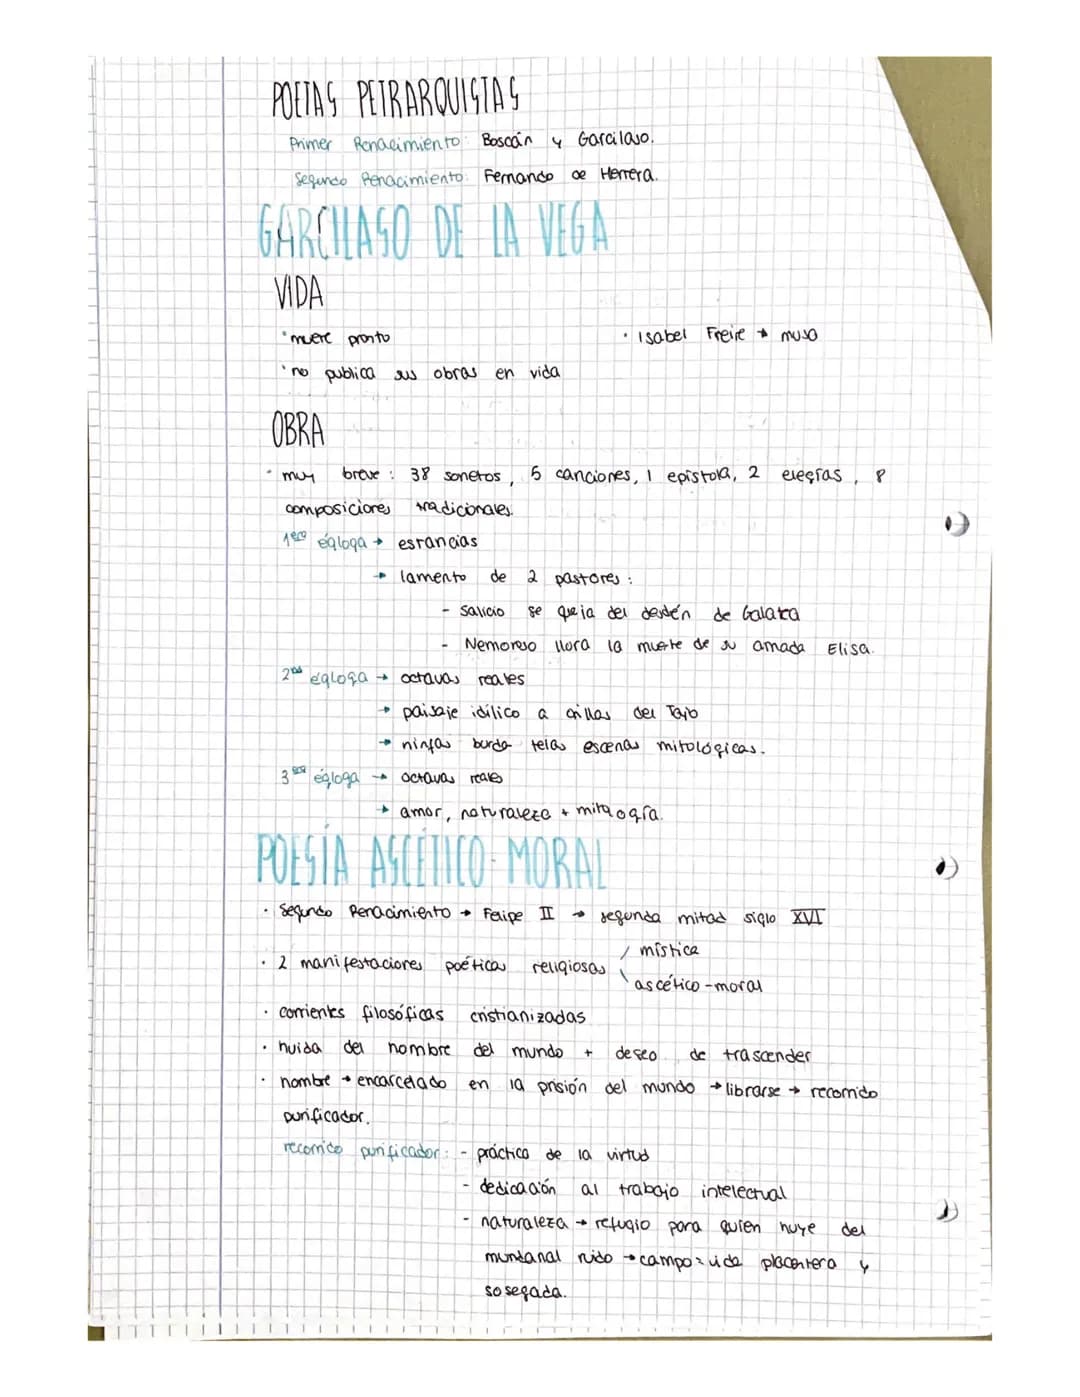 POETAS PETRARQUISTAS
Primer Renacimiento: Boscán y Garcilaso.
Segundo Renacimiento: Fernando de Herrera.
GARCILASO DE LA VEGA
VIDA
· muere pronto · Isabel Freire → musa
· no publica sus obras en vida
OBRA
· muy breve: 38 sonetos, 5 canciones, 1 epístola, 2 elegías, 8
composiciones tradicionales.
1era égloga → estancias
→ lamento de 2 pastores:
- Salicio se queja del desdén de Galatea
- Nemoroso llora la muerte de su amada Elisa.
2nda égloga → octavas reales
→ paisaje idílico a orillas del Tajo
→ ninfas borda telas escenas mitológicas.
3era égloga → octavas reales
→ amor, naturaleza + mitología.
POESÍA ASCÉTICO-MORAL
· Segundo Renacimiento → Felipe II → segunda mitad siglo XVI
· 2 manifestaciones poéticas religiosas / mística
\ ascético-moral
· corrientes filosóficas cristianizadas
· huida del hombre del mundo + deseo de trascender
· hombre → encarcelado en la prisión del mundo → librarse → recorrido
purificador.
recorrido purificador: - práctica de la virtud
- dedicación al trabajo intelectual
- naturaleza → refugio para quien huye del
mundanal ruido → campo = vida placentera y
sosegada.